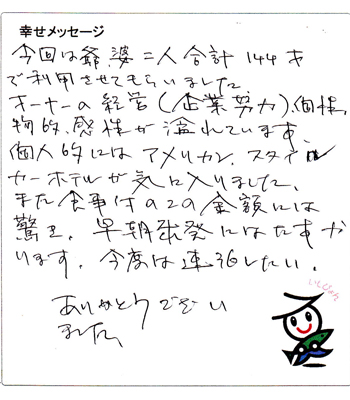 幸せメッセージ
今回は爺婆二人合計144才
で利用させてもらいました
オーナーの経営(企業努力)、個性、
物的、感性が溢れています。
個人的にはアメリカン、スタイル
カーホテルが気に入りました。
また食事付のこの金額には
驚き、早朝出発にはたすか
ります。今度は連泊したい。
ありがとうござい
ました。